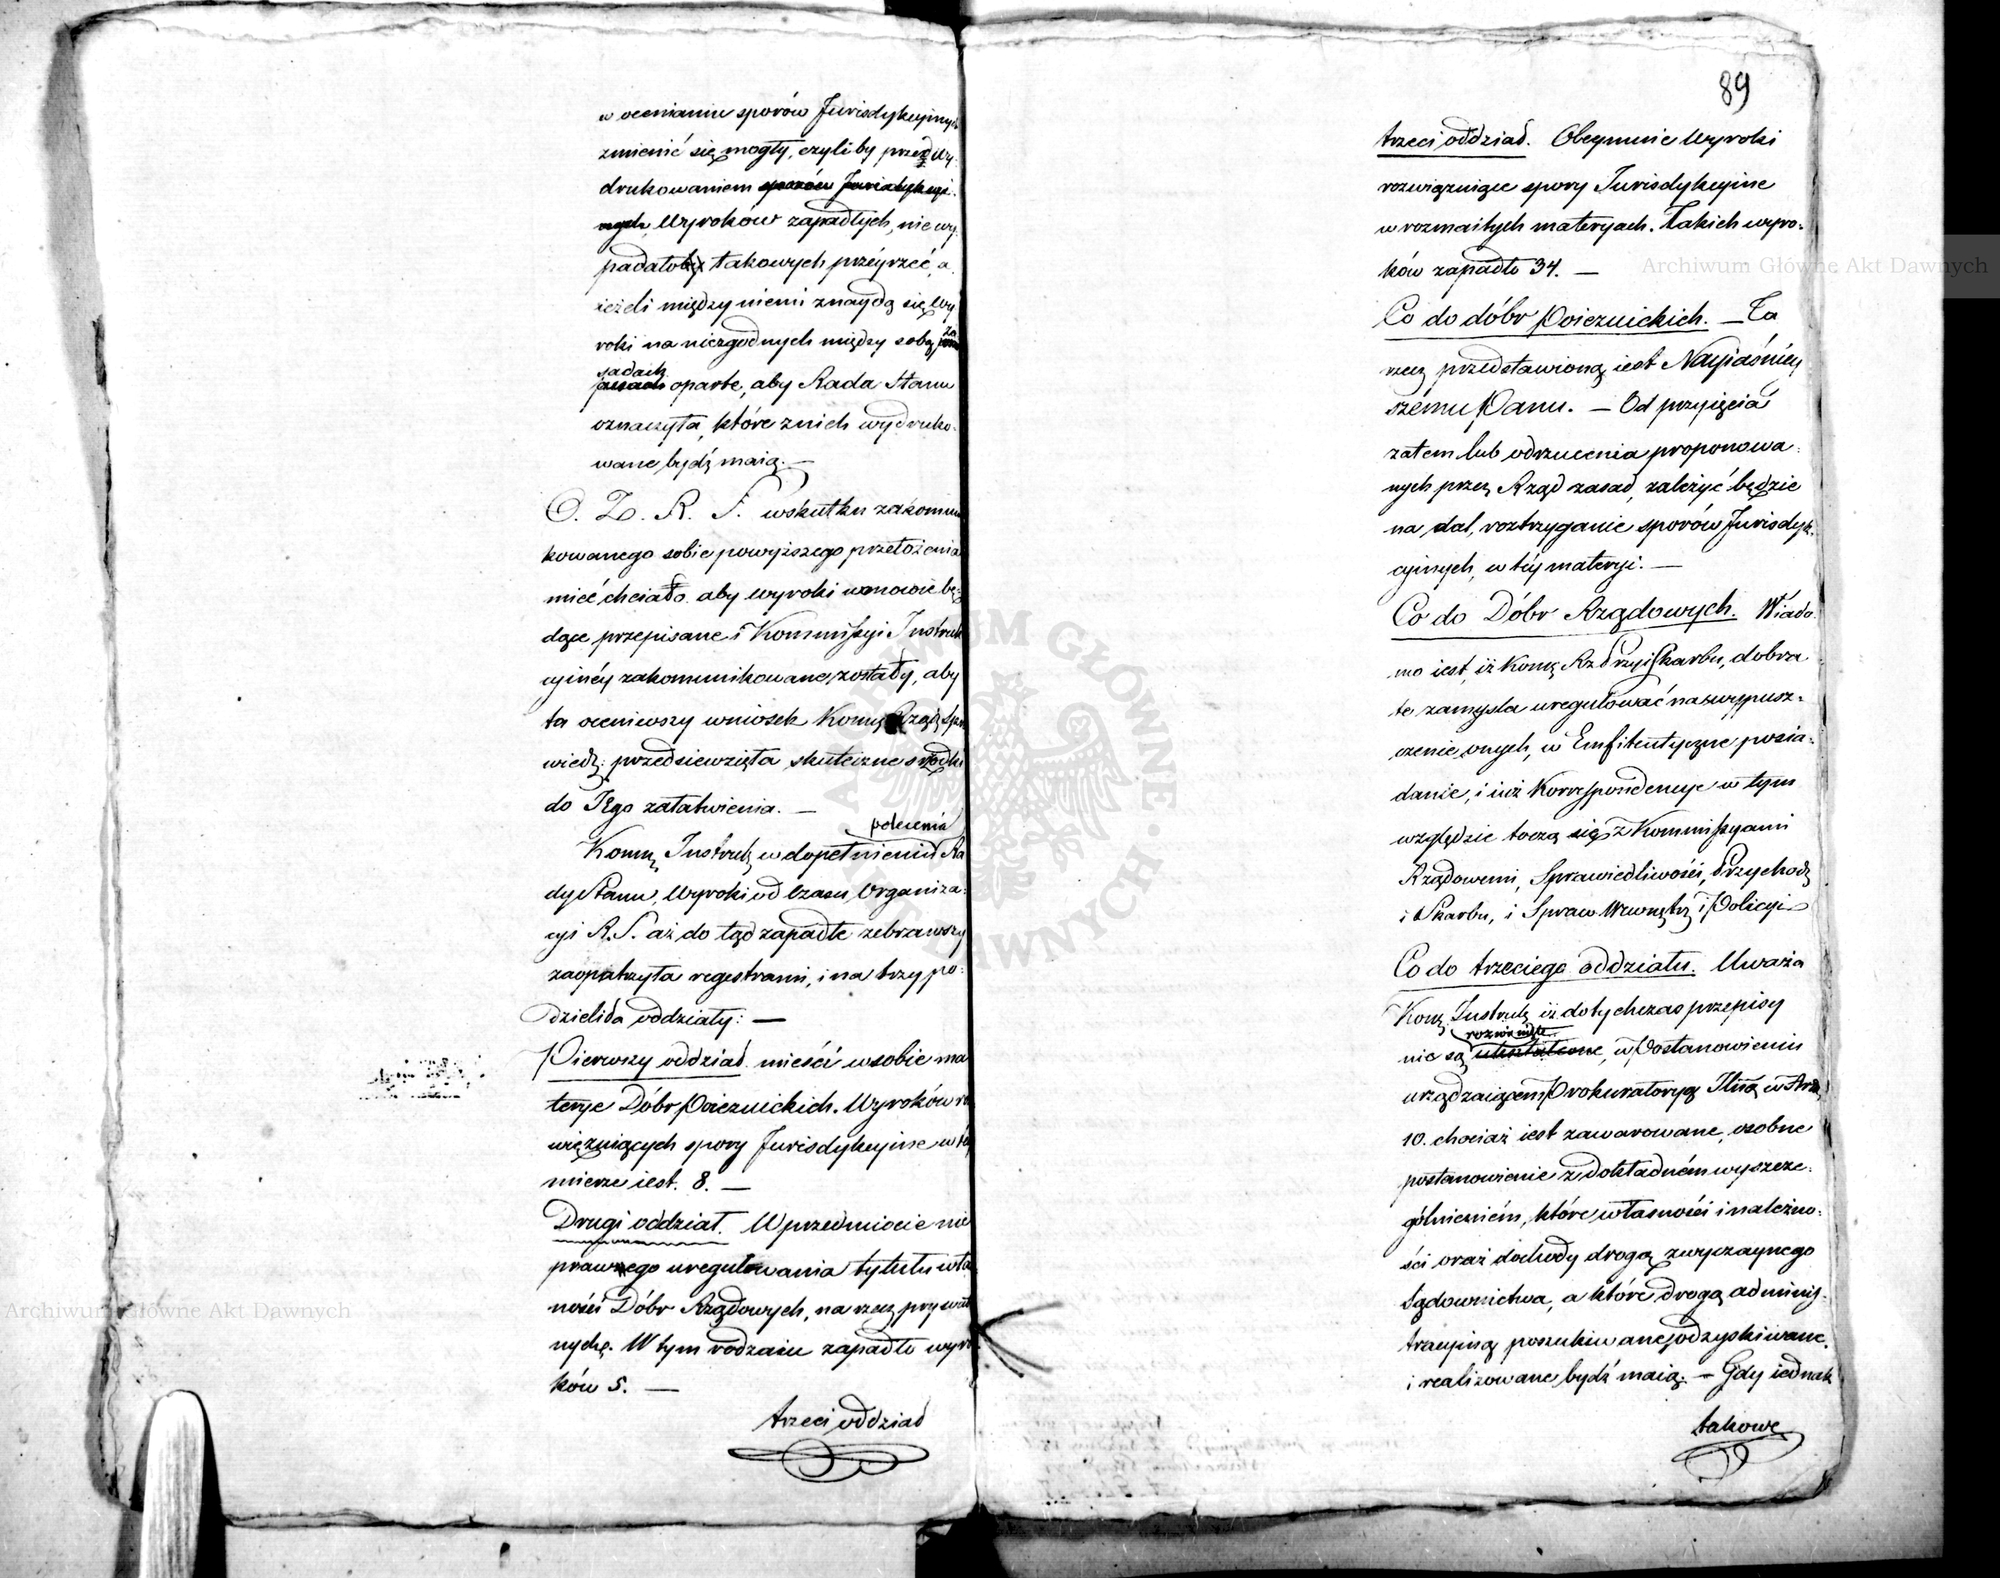 w ocenianiu sporów Jurisdykcyinych
zmienić się mogły, czyliby przed wy-
drukowaniem sporów Jurisdykcyi-
nych, Wyroków zapadłych, nie wy-
padałoby takowych przéyrzeć, a
ieżeli między niemi znaydą się wy-
roki na niezgodnych między sobą za
sadach oparte, aby Rada Stanu
oznaczyła, które z nich wydruko-
wane bydź maią. —
O. Z. R. S. w skutku zakomuni
kowanego sobie powyższego przełożenia
mieć chciało aby wyroki w mowie bę-
dące przepisane i Kommissyi Instruk
cyinéy zakomunikowane zostały, aby
ta oceniwszy wniosek Komm. Rządz. Spra
wiedz: przedsiewzięła skuteczne srodki
do Jego załatwienia. —
polecenia
Komm. Instruk. w dopełnieniu Ra
dy Stanu, Wyroki od czasu Organiza-
cyi R. S. aż do tąd zapadłe zebrawszy
zaopatrzyła regestrami, i na trzy po-
dzieliła oddziały: —
Pierwszy oddział mieści w sobie ma
terye Dóbr Poiezuickich. Wyroków ro
wiązuiących spory Jurisdykcyine w té
mierze iest. 8. —
Drugi oddział. W przedmiocie nie
prawnego uregulowania tytułu wła
ności Dóbr Rządowych, na rzecz prywat
nych. W tym rodzaiu zapadło wyro
ków 5. —
trzeci oddział
89
trzeci oddział. Obeymuie Wyroki
rozwiązuiące spory Jurisdykcyine
w rozmaitych materyach. Takich wyro-
ków zapadło 34. —
Co do dóbr Poiezuickich. — Ta
rzecz przedstawioną iest Nayiaśniey
szému Panu. — Od przyięcia
zatem lub odrzucenia proponowa-
nych przez Rząd zasad, zależyć będzie
na dal, roztrzyganie sporów Jurisdyk-
cyinych, w téy materyi. —
Co do Dóbr Rządowych. Wiado-
mo iest, iż Komm. Rz. Przy. i Skarbu, dobra
te zamysla uregulować na wypusz-
czenie onych, w Emfiteutyczne posia-
danie, i iuż Korrespondencye w tym
względzie toczą się z Kommissyami
Rządowemi, Sprawiedliwości, Przychod.
i Skarbu, i Spraw Wewnętrz. i Policyi
Co do trzeciego oddziału. Uważa
Komm. Instruk. iż dotychczas przepisy
rozwinięte
nie są ukształcone, w Postanowieniu
urządzaiącem Prokuratoryą Jlną w Art.
10. chociaż iest zawarowane, osobne
postanowienie z dokładném wyszcze-
gólnieniém, które własności i należno-
ści oraz dochody drogą zwyczaynego
sądownictwa, a które drogą adminis-
tracyiną poszukiwane, odzyskiwane,
i realizowane bydź maią. — Gdy iednak
takowe
Archiwum Główne Akt Dawnych
Archiwum Główne Akt Dawnych
ARCHIWUM GŁÓWNE AKT DAWNYCH